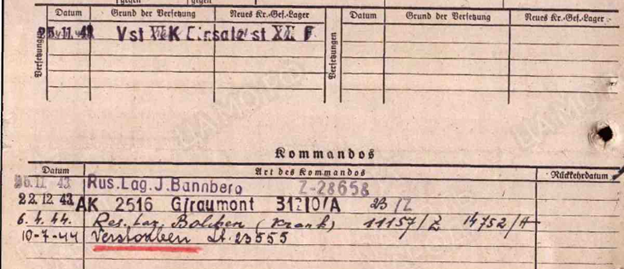 Datum Grund der Versetzung Neues Kr.-Gef.-Lager Datum Grund der Versetzung Neues Kr.-Gef.-Lager
Versetzungen
25.11.43 Vst K st F
Versetzungen
ЦАМО РФ
Kommandos
Datum Art des Kommandos Rückkehrdatum
26.11.43 Rus.Lag.J.Bannberg Z-28658
22.12.43 AK 2516 Giraumont 31210/A 23/Z
6.4.44. Res. Laz. Bolchen (krank) 11157/Z 14752/H
10-7-44 Verstorben Lt. 23555